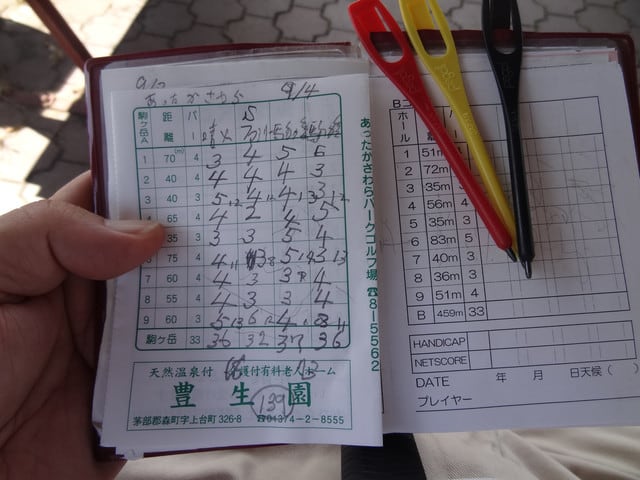 9/4
あったかさわら
駒ヶ岳A 距離 パー
1 70(m) 4 3 4 5 6
2 40 4 4 4 4 3
3 40 3 5 4 4 3
4 65 4 4 2 4 5
35 3 3 3 5 4
75 4 4 3 5 3
7 60 4 4 3 3 4
8 55 4 4 3 3 4
9 60 4 5 6 4
駒ヶ岳 33 36 32 37 36
あったかさわらパークゴルフ場 ☎8-5562
天然温泉付 護付有料老人ホーム
豊生園
139
茅部郡森町字上台町326-8 ☎01374-2-8555
Bコ
ホール パー
1 51m
2 72m
3 35m 3
4 56m 4
5 35m 3
6 83m 5
7 40m 3
8 36m 3
9 51m 4
B 459m 33
HANDICAP
NETSCORE
DATE 年 月 日 天候( )
プレイヤー